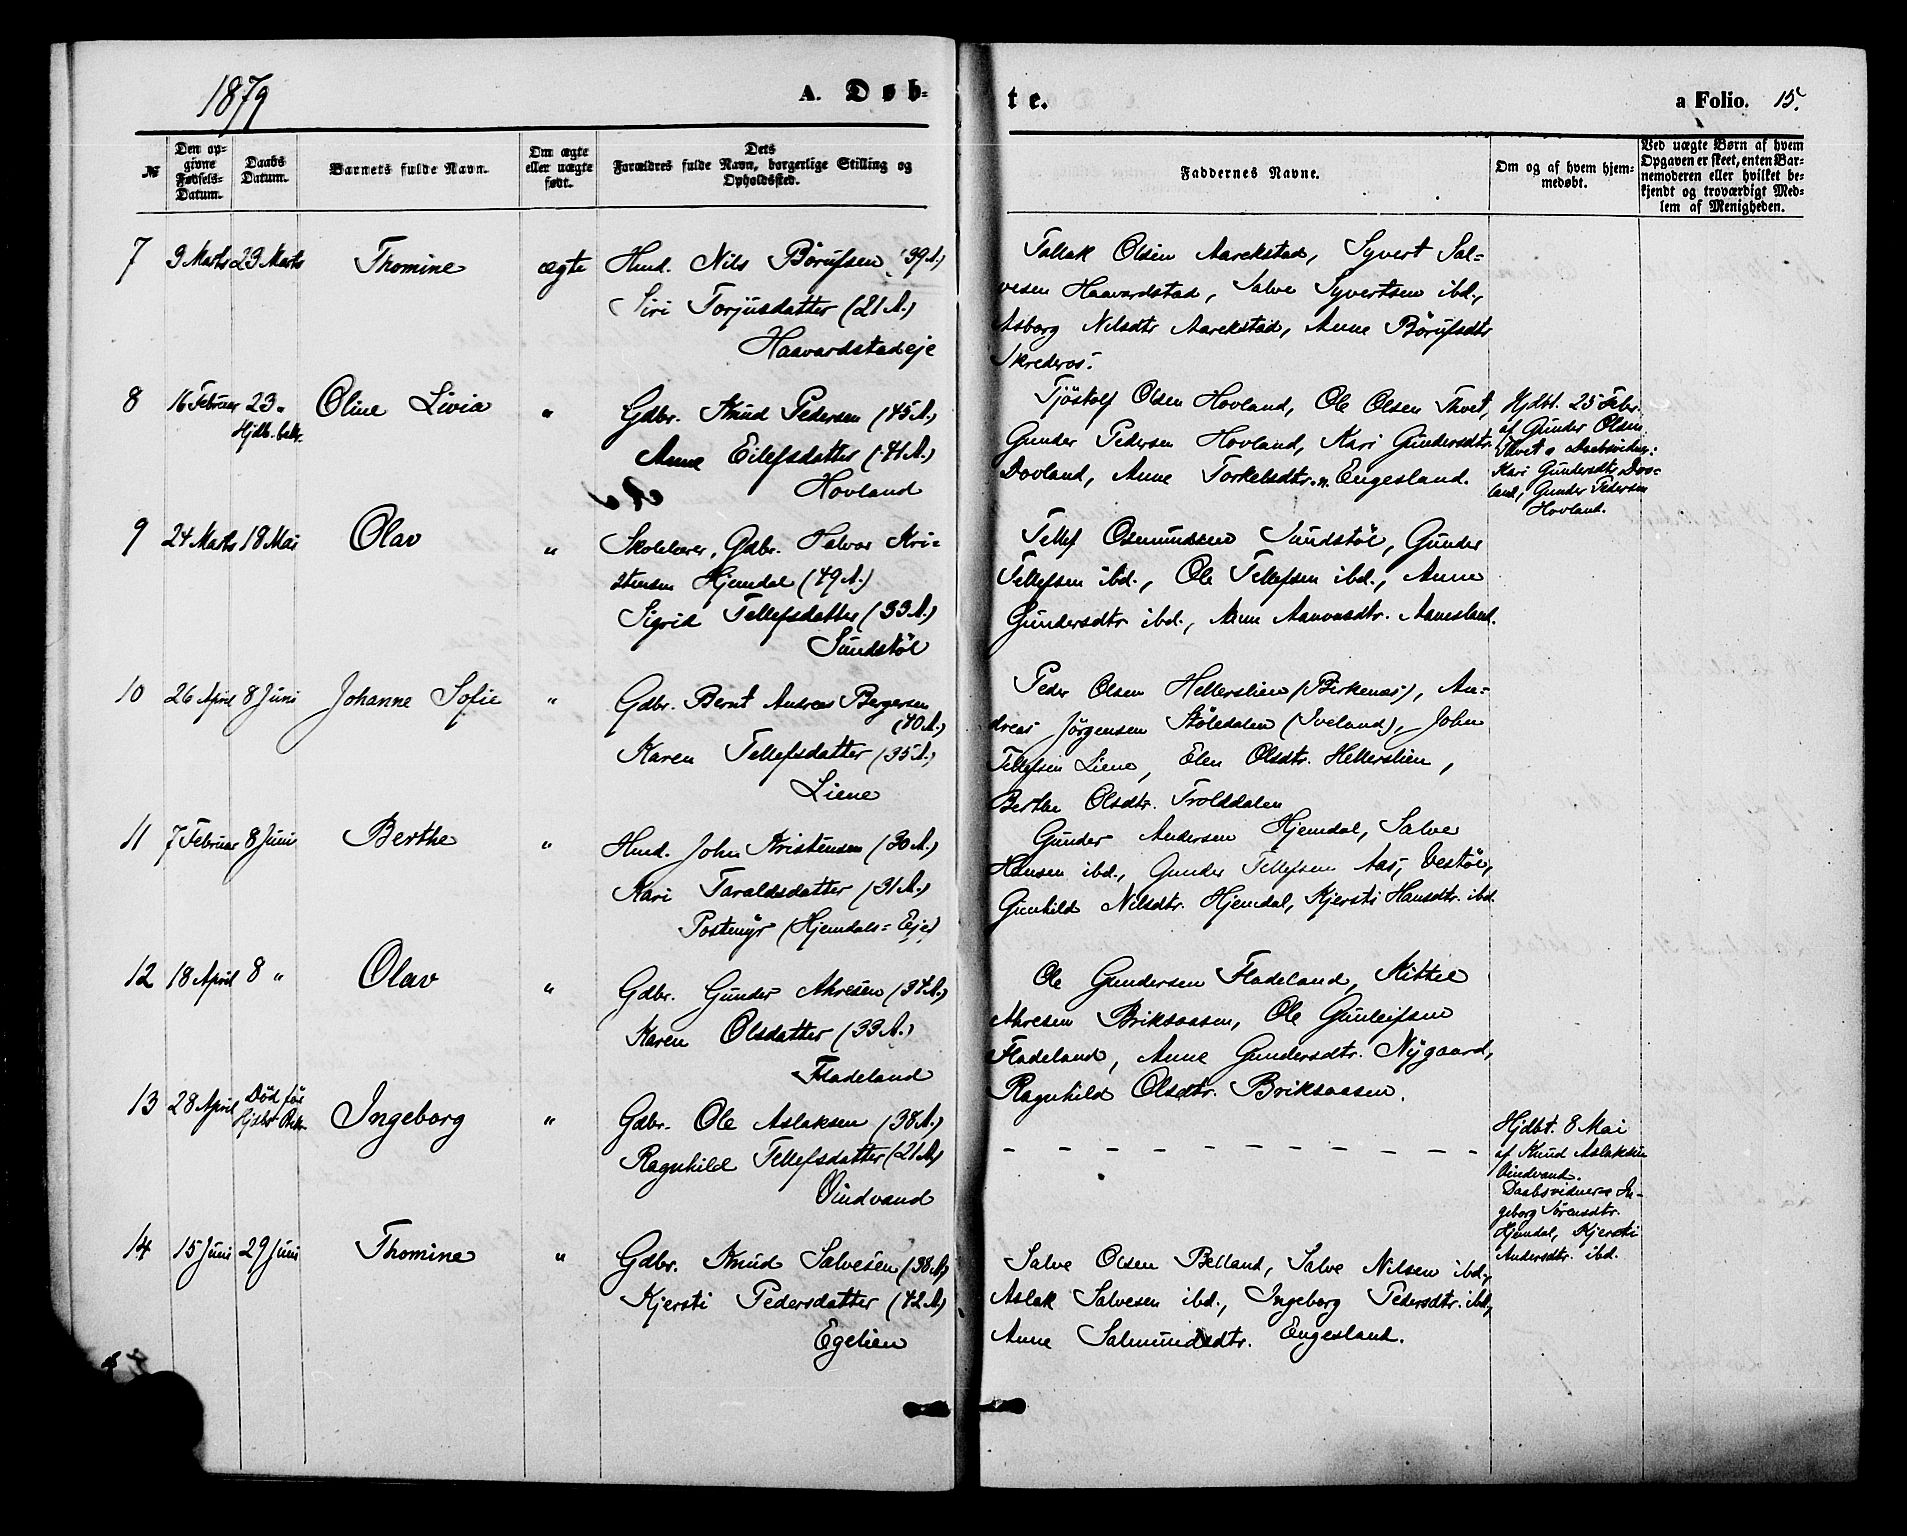 1879
A. Døb-
te.
a Folio. 15.
№
Den op-
givne
Fødsels-
Datum.
Daabs
Datum.
Barnets fulde Navn.
Om ægte
eller uægte
født.
Dets
Forældres fulde Navn, borgerlige Stilling og
Opholdssted.
Faddernes Navne.
Om og af hvem hjem-
medøbt.
Ved uægte Børn af hvem
Opgaven er skeet, enten Bar-
nemoderen eller hvilket be-
kjendt og troværdigt Med-
lem af Menigheden.
7 3 Marts 23 Marts Thomine ægte Hmd. Nils Börufsen (39 A.)
Siri Torjusdatter (21 A.)
Haavardstadeje
Tallak Olsen Aarekstad, Syvert Sal-
vesen Haavardstad, Salve Syvertsen ibd.,
Asborg Nilsdtr Aarekstad, Anne Börufsdtr
Skrederos.
8 16 Februar 23 „ Oline Livia „ Gdbr. Knud Pedersen (45 A.)
Hjdb. bekr.
Anne Eilefsdatter (41 A.)
Hovland
Tjöstolf Olsen Hovland, Ole Olsen Thvet,
Gunder Pedersen Hovland, Kari Gundersdtr.
Dovland, Anne Torkelsdtr. n. Engesland.
Hjdbt. 25 Febr.
af Gunder Olsen
Thvet. Daabsvidner:
Kari Gundersdtr. Dov-
land, Gunder Pedersen
Hovland.
9 24 Marts 18 Mai Olav „ Skolelærer, Gdbr. Halvor Kri-
stensen Hjemdal (49 A.)
Sigrid Tellefsdatter (33 A.)
Sundstöl
Tellef Osmundsen Sundstöl, Gunder
Tellefsen ibd., Ole Tellefsen ibd., Anne
Gundersdtr ibd., Anne Aanonsdtr. Aanesland.
10 26 April 8 Juni Johanne Sofie „ Gdbr. Bernt Andreas Bergersen
(40 A.)
Karen Tellefsdatter (35 A.)
Liene
Peder Olsen Hellerslien (Birkenas), An-
dreas Jörgensen Stöledalen (Iveland), John
Tellefsen Liene, Elen Olsdtr. Hellerslien,
Berthe Olsdtr. Trolddalen
11 7 Februar 8 Juni Berthe „ Hmd. John Kristensen (30 A.)
Kari Taraldsdatter (31 A.)
Postmyr (Hjemdals-Eje)
Gunder Andersen Hjemdal, Salve
Hansen ibd., Gunder Tellefsen Aas, Vestöl,
Gunhild Nilsdtr. Hjemdal, Kjersti Hansdtr. ibd.
12 18 April 8 „ Olav „ Gdbr. Gunder Akresen (34 A.)
Karen Olsdatter (33 A.)
Fladeland
Ole Gundersen Fladeland, Kittel
Akresen Briksaasen, Ole Gunleifsen
Fladeland, Anne Gundersdtr. Nygaard,
Ragnhild Olsdtr. Briksaasen.
13 28 April Död för Ingeborg „ Gdbr. Ole Aslaksen (38 A.)
Hjdbs Bekr.
Ragnhild Tellefsdatter (21 A.)
Vindvand
– – – – – – – – – – –
Hjdbt. 8 Mai
af Knud Aslaksen
Vindvand.
Daabsvidner: In-
geborg Sörensdtr.
Hjemdal, Kjersti
Andersdtr. ibd.
14 15 Juni 29 Juni Thomine „ Gdbr. Knud Salvesen (38 A.)
Kjersti Pedersdatter (42 A.)
Egelien
Salve Olsen Belland, Salve Nilsen ibd.,
Aslak Salvesen ibd., Ingeborg Pedersdtr. ibd.,
Anne Salmundsdtr. Engesland.